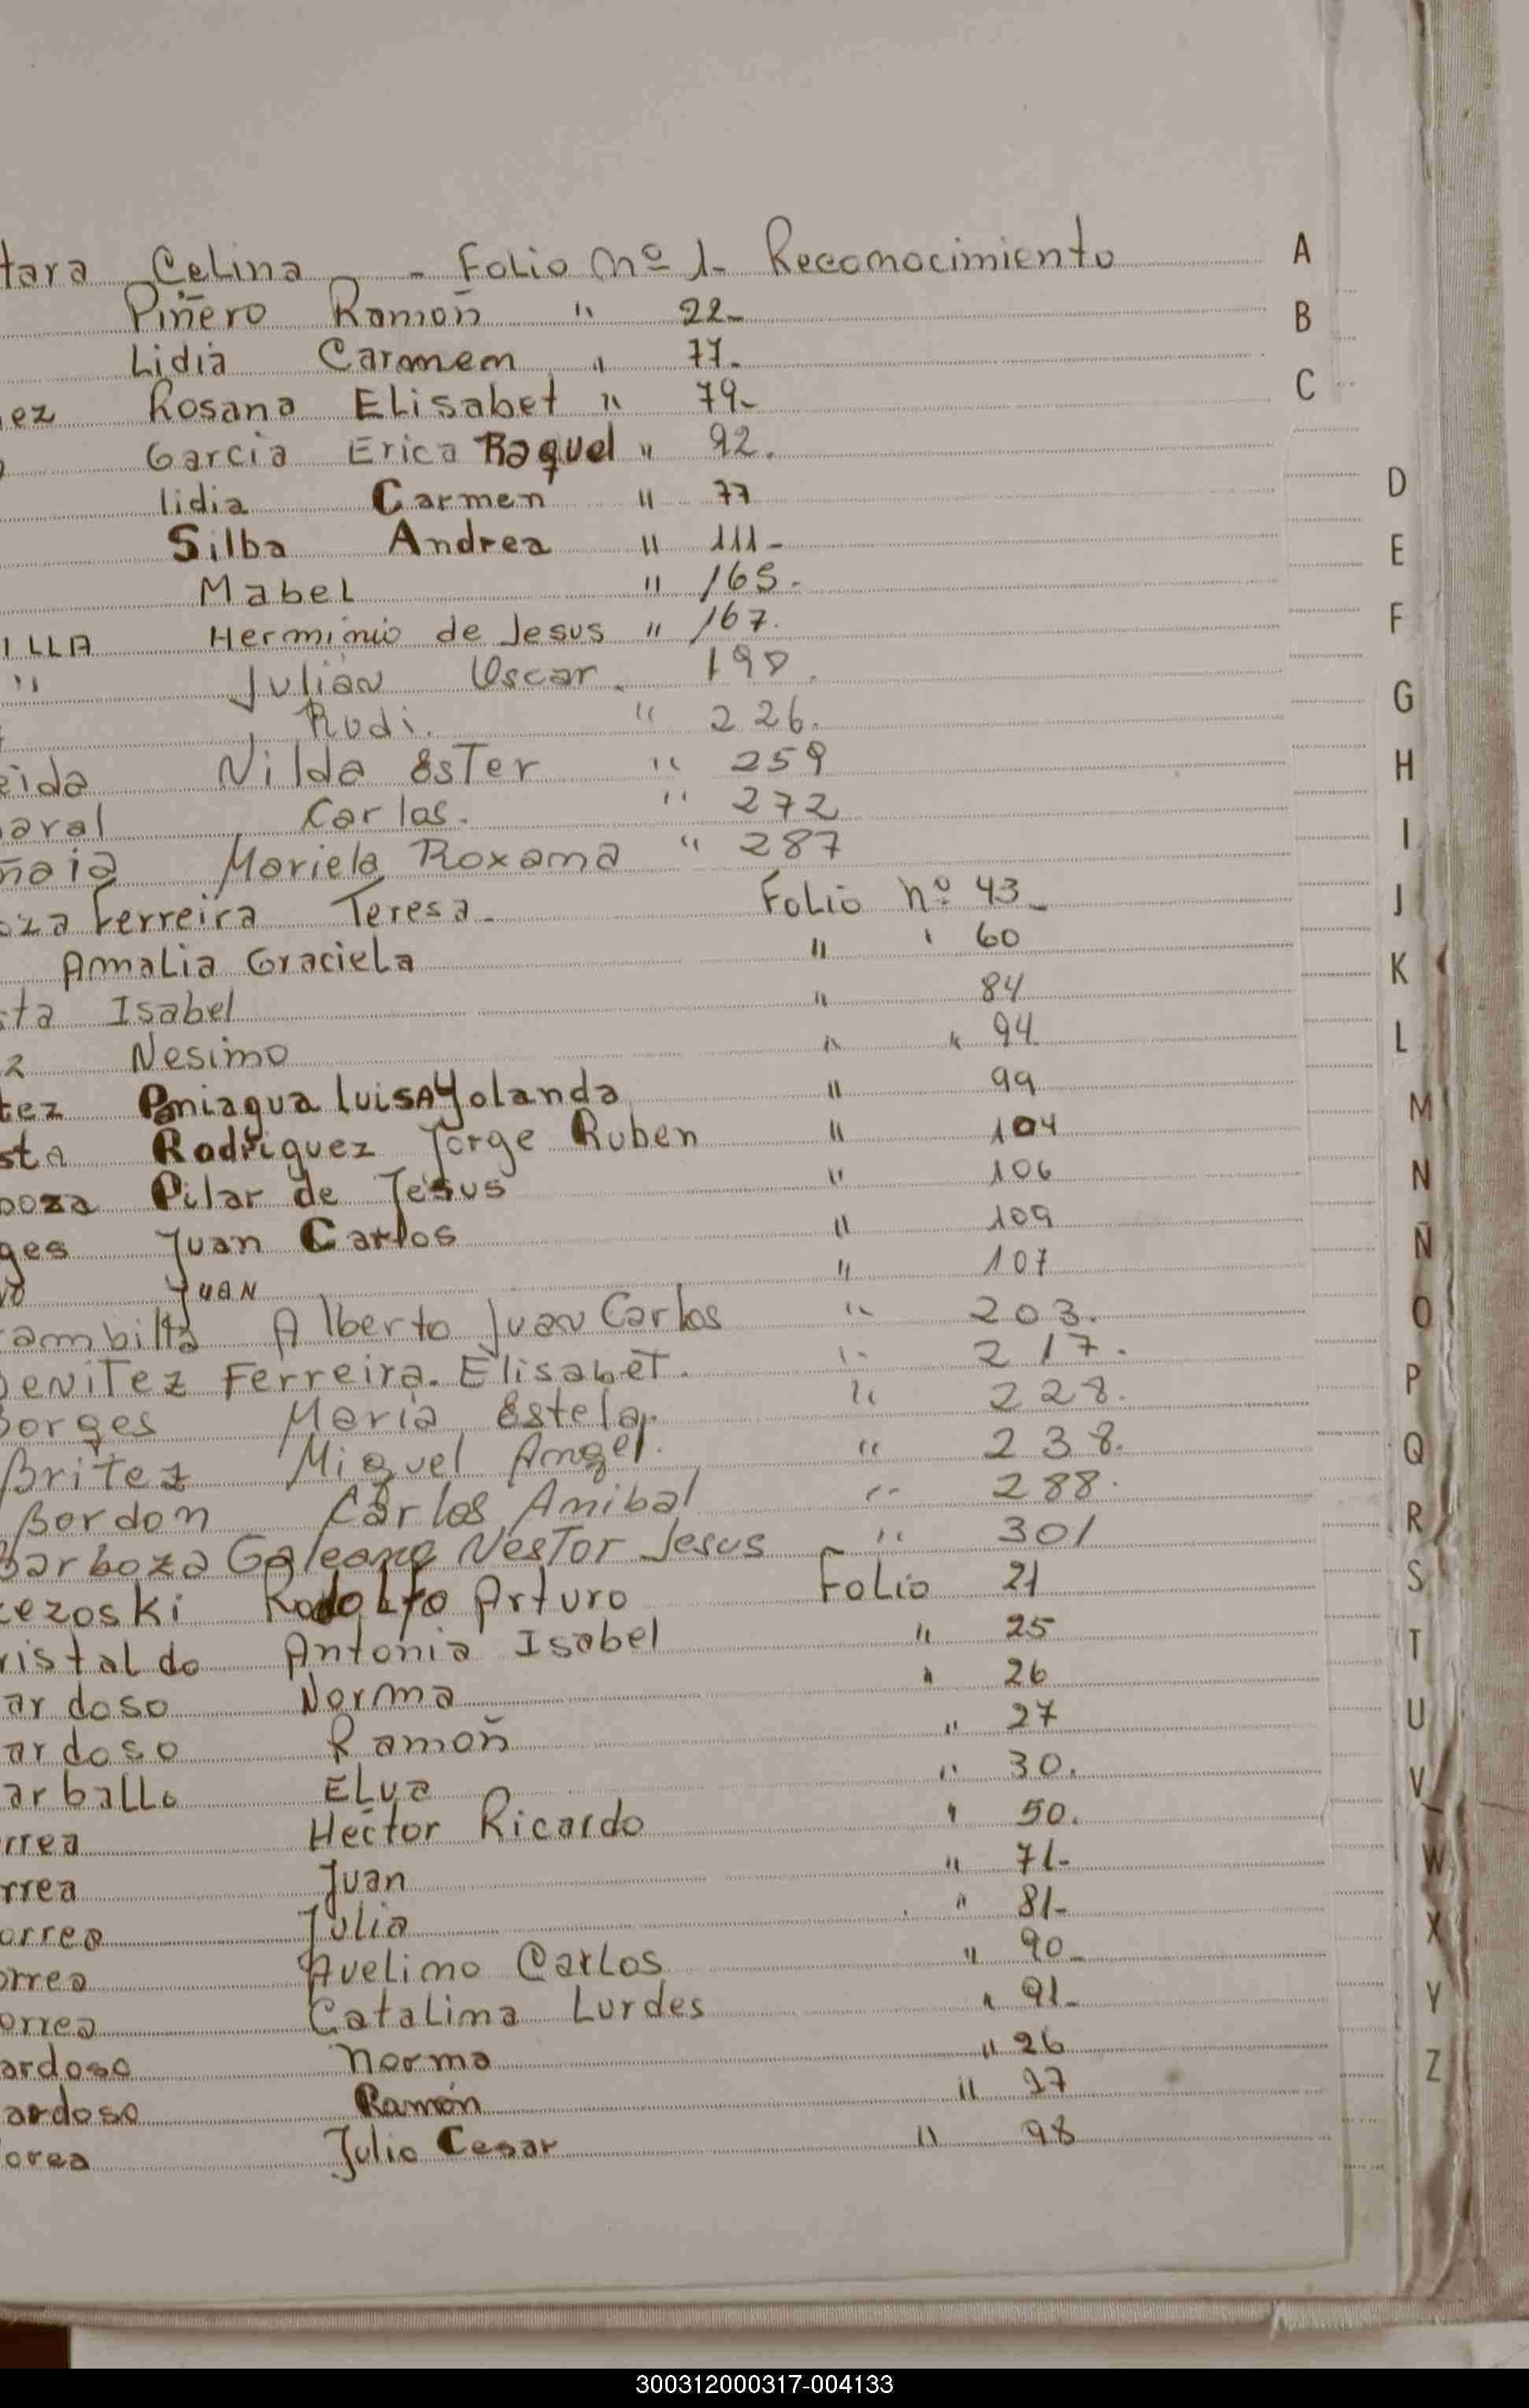 tara Celina - Folio nº 1- Reconocimiento
Piñero Ramoñ " 22-
Lidia Carmen " 77.
ez Rosana Elisabet " 79-
Garcia Erica Raquel " 92.
lidia Carmen " 77
Silba Andrea " 111-
Mabel " 165.
ILLA Herminio de Jesus " 167.
" Julián Oscar. 198.
Rudi. " 226.
eida Nilda Ester " 259
aral Carlos. " 272
ñaia Mariela Roxana " 287
oza Ferreira Teresa- Folio nº 43-
Amalia Graciela " " 60
sta Isabel " 84
z Nesimo " " 94
tez Paniagua luisa Yolanda " 99
sta Rodriguez Jorge Ruben " 104
boza Pilar de Jesus " 106
ges Juan Carlos " 109
Juan " 107
ambilla Alberto Juan Carlos " 203.
Benitez Ferreira. Elisabet. " 217.
Borges María Estela. " 228.
Britez Miguel Angel. " 238.
Bordon Carlos Anibal " 288.
Barboza Galeano Nestor Jesus " 301
cezoski Rodolfo Arturo Folio 21
ristaldo Antonia Isabel " 25
ardoso Norma " 26
ardoso Ramoñ " 27
arballo Elva " 30.
rrea Hector Ricardo " 50.
rrea Juan " 71-
orrea Julia " 81-
orrea Avelino Carlos " 90-
orrea Catalina Lurdes " 91-
ardoso norma " 26
ardoso Ramón " 27
orea Julio Cesar " 98
A
B
C
D
E
F
G
H
I
J
K
L
M
N
Ñ
O
P
Q
R
S
T
U
V
W
X
Y
Z
300312000317-004133